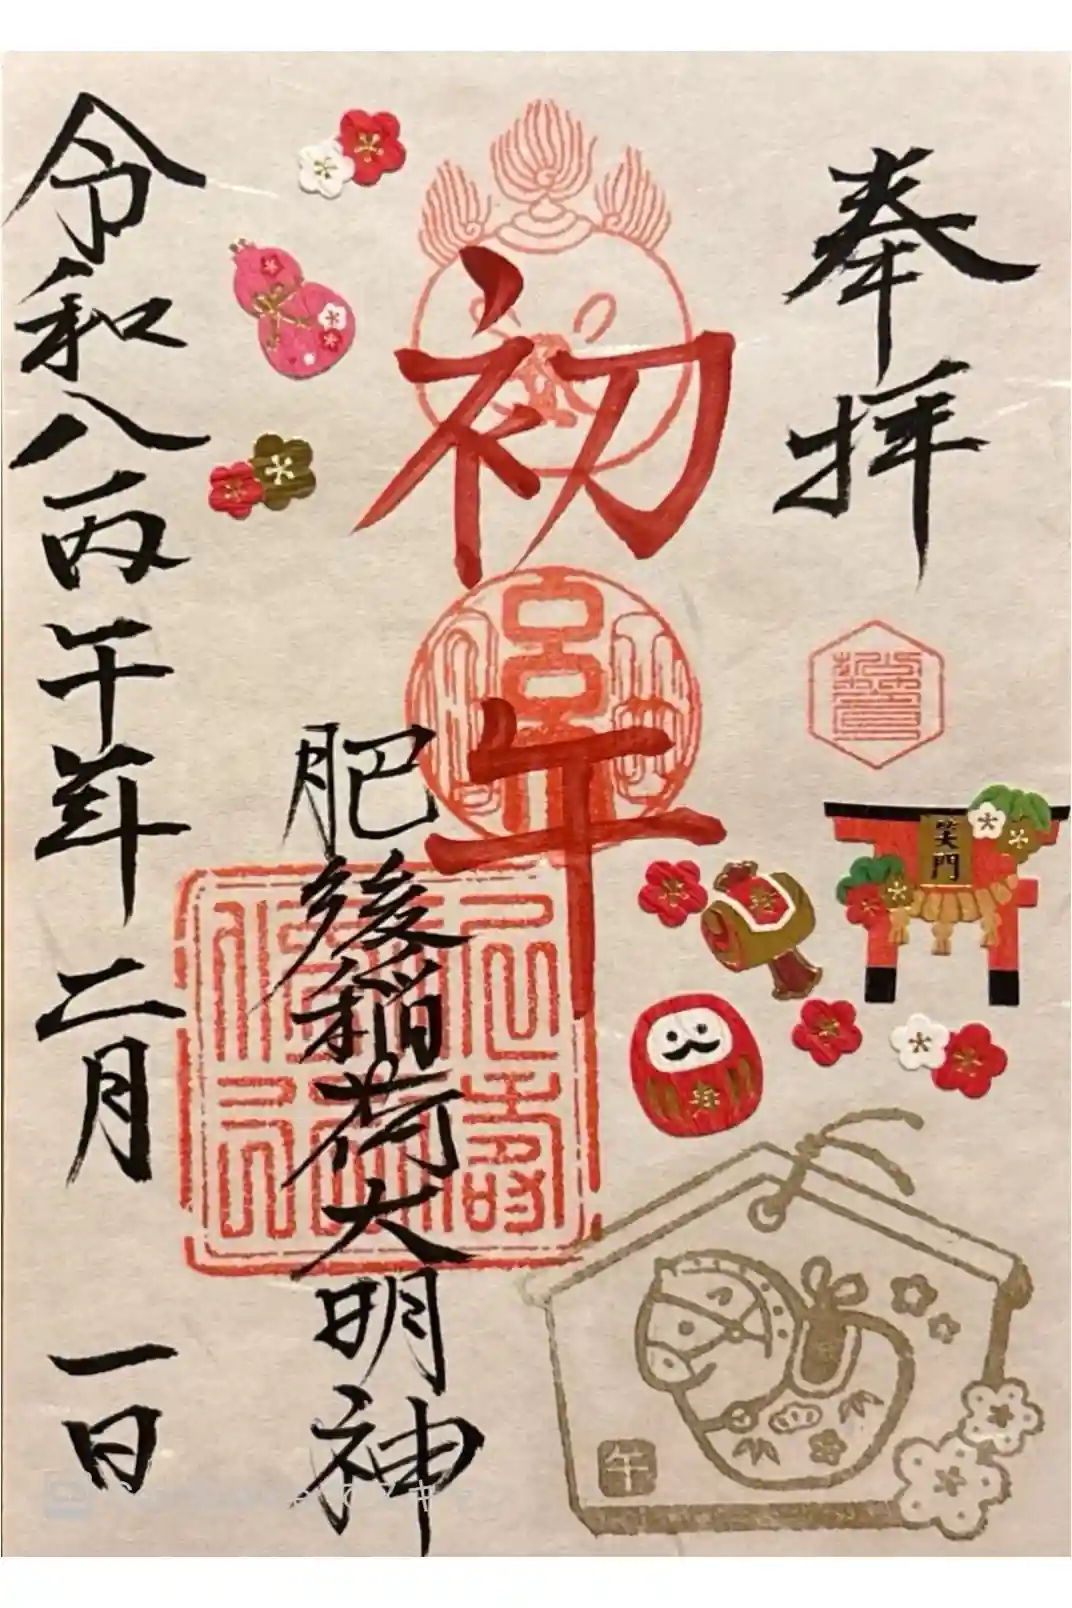 奉拝
初午
肥後稲荷大明神
令和八丙午年二月一日
笑門
午